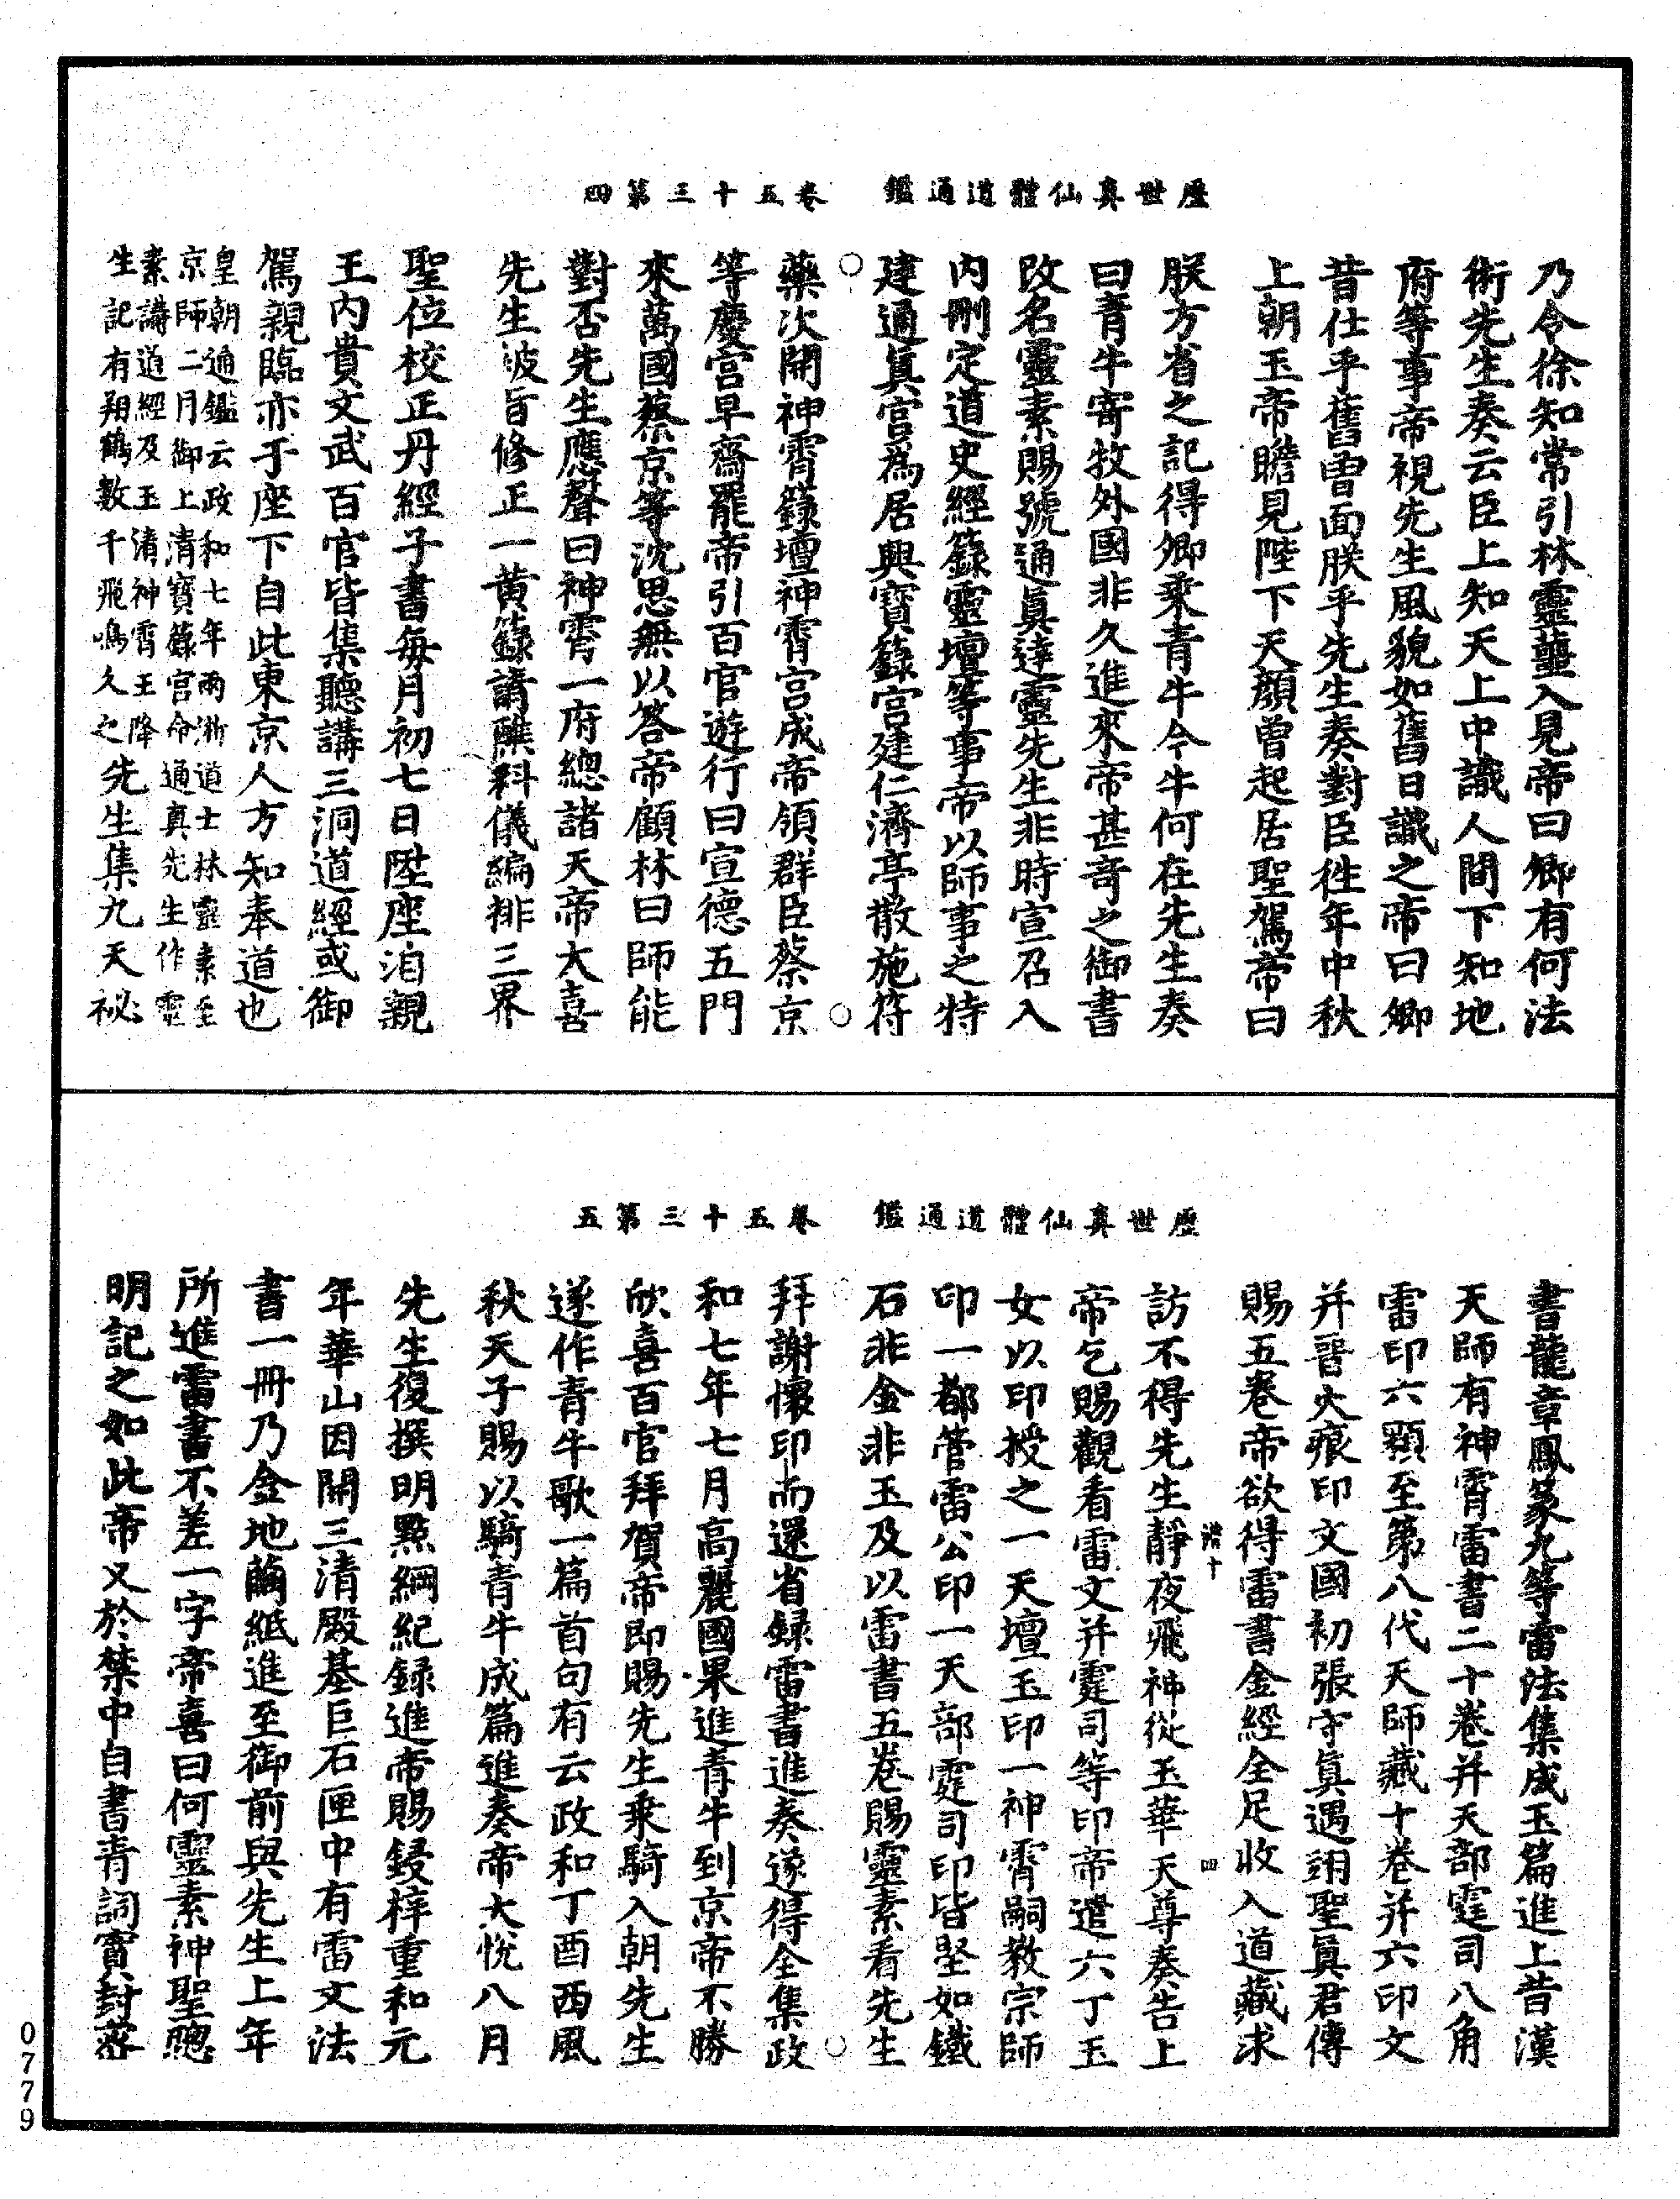 歷世真仙體道通鑑　卷五十三第四
乃令徐知常引林靈蘁入見帝曰卿有何法
術先生奏云臣上知天上中識人間下知地
府等事帝視先生風貌如舊日識之帝曰卿
昔仕乎舊曾面朕乎先生奏對臣徃年中秋
上朝玉帝瞻見陛下天顏曾起居聖駕帝曰
朕方省之記得卿乘青牛今牛何在先生奏
曰青牛寄牧外國非久進來帝甚竒之御書
改名靈素賜號通真達靈先生非時宣召入
內刪定道史經籙靈壇等事帝以師事之特
建通真宮為居興寶籙宮建仁濟亭散施符
藥次開神霄籙壇神霄宮成帝領群臣蔡京
等慶宮早齋罷帝引百官遊行曰宣德五門
來萬國蔡京等沈思無以答帝顧林曰師能
對否先生應聲曰神霄一府總諸天帝大喜
先生被旨修正一黃籙請醮科儀編排三界
聖位校正丹經子書每月初七日陞座洎親
王內貴文武百官皆集聽講三洞道經或御
駕親臨亦于座下自此東京人方知奉道也
皇朝通鑑云政和七年兩浙道士林靈素至
京師二月御上清寶籙宮命通真先生作靈
素講道經及玉清神霄王降
生記有翔鶴數千飛鳴久之先生集九天祕
歷世真仙體道通鑑　卷五十三第五
書龍章鳳篆九等雷法集成玉篇進上昔漢
天師有神霄雷書二十卷并天部霆司八角
雷印六顆至第八代天師藏十卷并六印文
并晉火痕印文國初張守真遇翊聖真君傳
賜五卷帝欲得雷書金經全足收入道藏求
訪不得先生靜夜飛神從玉華天尊奏告上
帝乞賜觀看雷文并霆司等印帝遣六丁玉
女以印授之一天壇玉印一神霄嗣教宗師
印一都管雷公印一天部霆司印皆堅如鐵
石非金非玉及以雷書五卷賜靈素看先生
拜謝懷印而還省錄雷書進奏遂得全集政
和七年七月高麗國果進青牛到京帝不勝
欣喜百官拜賀帝即賜先生乘騎入朝先生
遂作青牛歌一篇首句有云政和丁酉西風
秋天子賜以騎青牛成篇進奏帝大悅八月
先生復撰明點綱紀錄進帝賜鋟梓重和元
年華山因開三清殿基巨石匣中有雷文法
書一冊乃金地繭紙進至御前與先生上年
所進雷書不差一字帝喜曰何靈素神聖聰
明記之如此帝又於禁中自書青詞實封密
0779